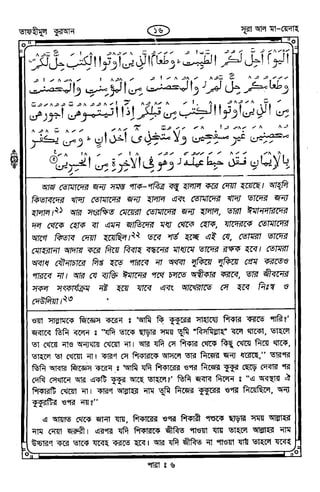 তাফহীমুল কুরআন
১৬
সূরা আল মা-য়েদাহ
اَلْيَوْمَ اُحِلَّ لَكُمُ الطَّيِّبٰتُ ؕ وَطَعَامُ الَّذِيْنَ اُوْتُوا الْكِتٰبَ حِلٌّ لَّكُمْ ۪
وَطَعَامُكُمْ حِلٌّ لَّهُمْ ؗ وَالْمُحْصَنٰتُ مِنَ الْمُؤْمِنٰتِ وَالْمُحْصَنٰتُ
مِنَ الَّذِيْنَ اُوْتُوا الْكِتٰبَ مِنْ قَبْلِكُمْ اِذَاۤ اٰتَيْتُمُوْهُنَّ اُجُوْرَهُنَّ
مُحْصِنِيْنَ غَيْرَ مُسٰفِحِيْنَ وَلَا مُتَّخِذِيْۤ اَخْدَانٍ ؕ وَمَنْ يَّكْفُرْ
بِالْاِيْمَانِ فَقَدْ حَبِطَ عَمَلُهٗ ؗ وَهُوَ فِي الْاٰخِرَةِ مِنَ الْخٰسِرِيْنَ ۝
আজ তোমাদের জন্য সমস্ত পাক-পবিত্র বস্তু হালাল করে দেয়া হয়েছে। আহ্‌লি
কিতাবদের খাদ্য তোমাদের জন্য হালাল এবং তোমাদের খাদ্য তাদের জন্য
হালাল।২১ আর সংরক্ষিত মেয়েরা তোমাদের জন্য হালাল, তারা ঈমানদারদের
দল থেকে হোক বা এমন জাতিদের মধ্য থেকে হোক, যাদেরকে তোমাদের
আগে কিতাব দেয়া হয়েছিল।২২ তবে শর্ত হচ্ছে এই যে, তোমরা তাদের
মোহরানা আদায় করে দিয়ে বিবাহ বন্ধনের মাধ্যমে তাদের রক্ষক হবে। তোমরা
অবাধ যৌনাচারে লিপ্ত হতে পারবে না অথবা লুকিয়ে লুকিয়ে প্রেম করতেও
পারবে না। আর যে ব্যক্তি ঈমানের পথে চলতে অস্বীকার করবে, তার জীবনের
সকল সৎকার্যক্রম নষ্ট হয়ে যাবে এবং আখেরাতে সে হবে নিঃস্ব ও
দেউলিয়া।২৩
ওয়া সাল্লামকে জিজ্ঞেস করেন : "আমি কি কুকুরের সাহায্যে শিকার করতে পারি?"
জবাবে তিনি বলেন : "যদি তাকে ছাড়ার সময় তুমি "বিসমিল্লাহ" বলে থাকো, তাহলে
তা খেয়ে নাও অন্যথায় খেয়ো না। আর যদি সে শিকার থেকে কিছু খেয়ে নিয়ে থাকে,
তাহলে তা খেয়ো না। কারণ সে শিকারকে আসলে তার নিজের জন্য ধরেছে," তারপর
তিনি আবার জিজ্ঞেস করেন : "আমি যদি শিকারের ওপর নিজের কুকুর ছেড়ে দেবার পর
দেখি সেখানে আর একটি কুকুর আছে তাহলে?" তিনি জবাব দিলেন : "এ অবস্থায় ঐ
শিকারটি খেয়ো না। কারণ আল্লাহর নাম তুমি নিজের কুকুরের ওপর নিয়েছিলে, অন্য
কুকুরটির ওপর নয়।"
এ আয়াত থেকে জানা যায়, শিকারের ওপর শিকারী পশুকে ছাড়ার সময় আল্লাহর
নাম নেয়া জরুরী। এরপর যদি শিকারকে জীবিত পাওয়া যায় তাহলে আল্লাহর নাম
উচ্চারণ করে তাকে যবেহ করতে হবে। আর যদি জীবিত না পাওয়া যায় তাহলে যবেহ
পারা : ৬